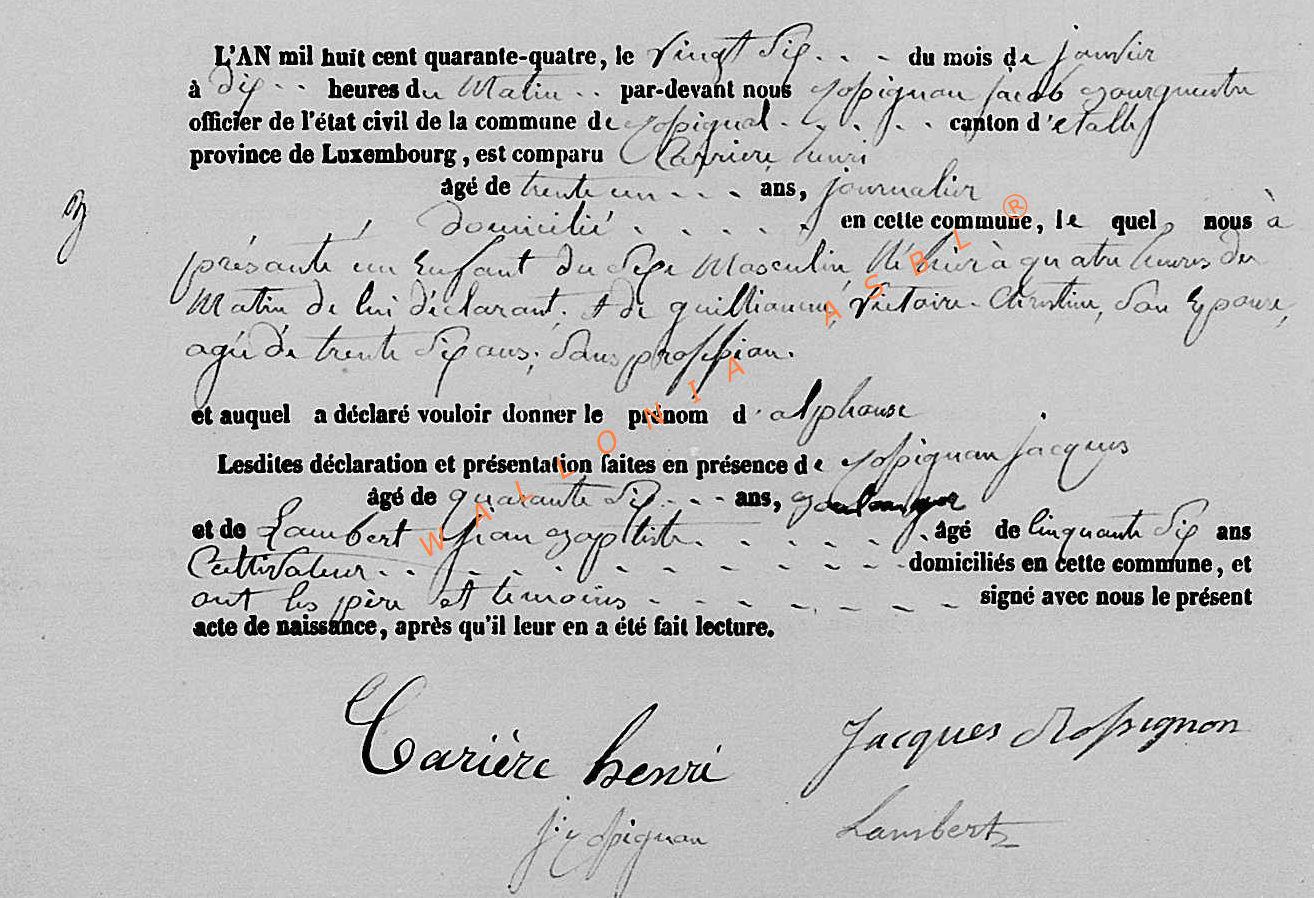 L'AN mil huit cent quarante-quatre, le vingt Six . . - du mois de janvier
à Dix . . heures du Matin . . par-devant nous Rossignon jacob Bourguemtre
officier de l'état civil de la commune de Rossignol . - . - . . canton d'etalle
province de Luxembourg, est comparu Carriere henri
âgé de trente un - - . - ans, journalier
domicilié . . . . . en cette commune, le quel nous à
3
présanté un Enfant du Sexe Masculin Né hier à quatre heures du
Matin de lui déclarant. & de guilliaume, Victoire - Christine, Son Epouse,
agée de trente Six ans, Sans profession.
et auquel a déclaré vouloir donner le prénom d'alphonse
Lesdites déclaration et présentation faites en présence de Rossignon jacques
âgé de quarante Six - - - ans,
et de Lambert jean Baptiste . - . . . . âgé de Cinquante Six ans
Cultivateur . . - . - - - - - - - domiciliés en cette commune, et
ont les père et temoins - - - - - - - - signé avec nous le présent
acte de naissance, après qu'il leur en a été fait lecture.
Carière henri
Jacques Rossignon
j: Rossignon
Lambert
WALLONIA ASBL ®